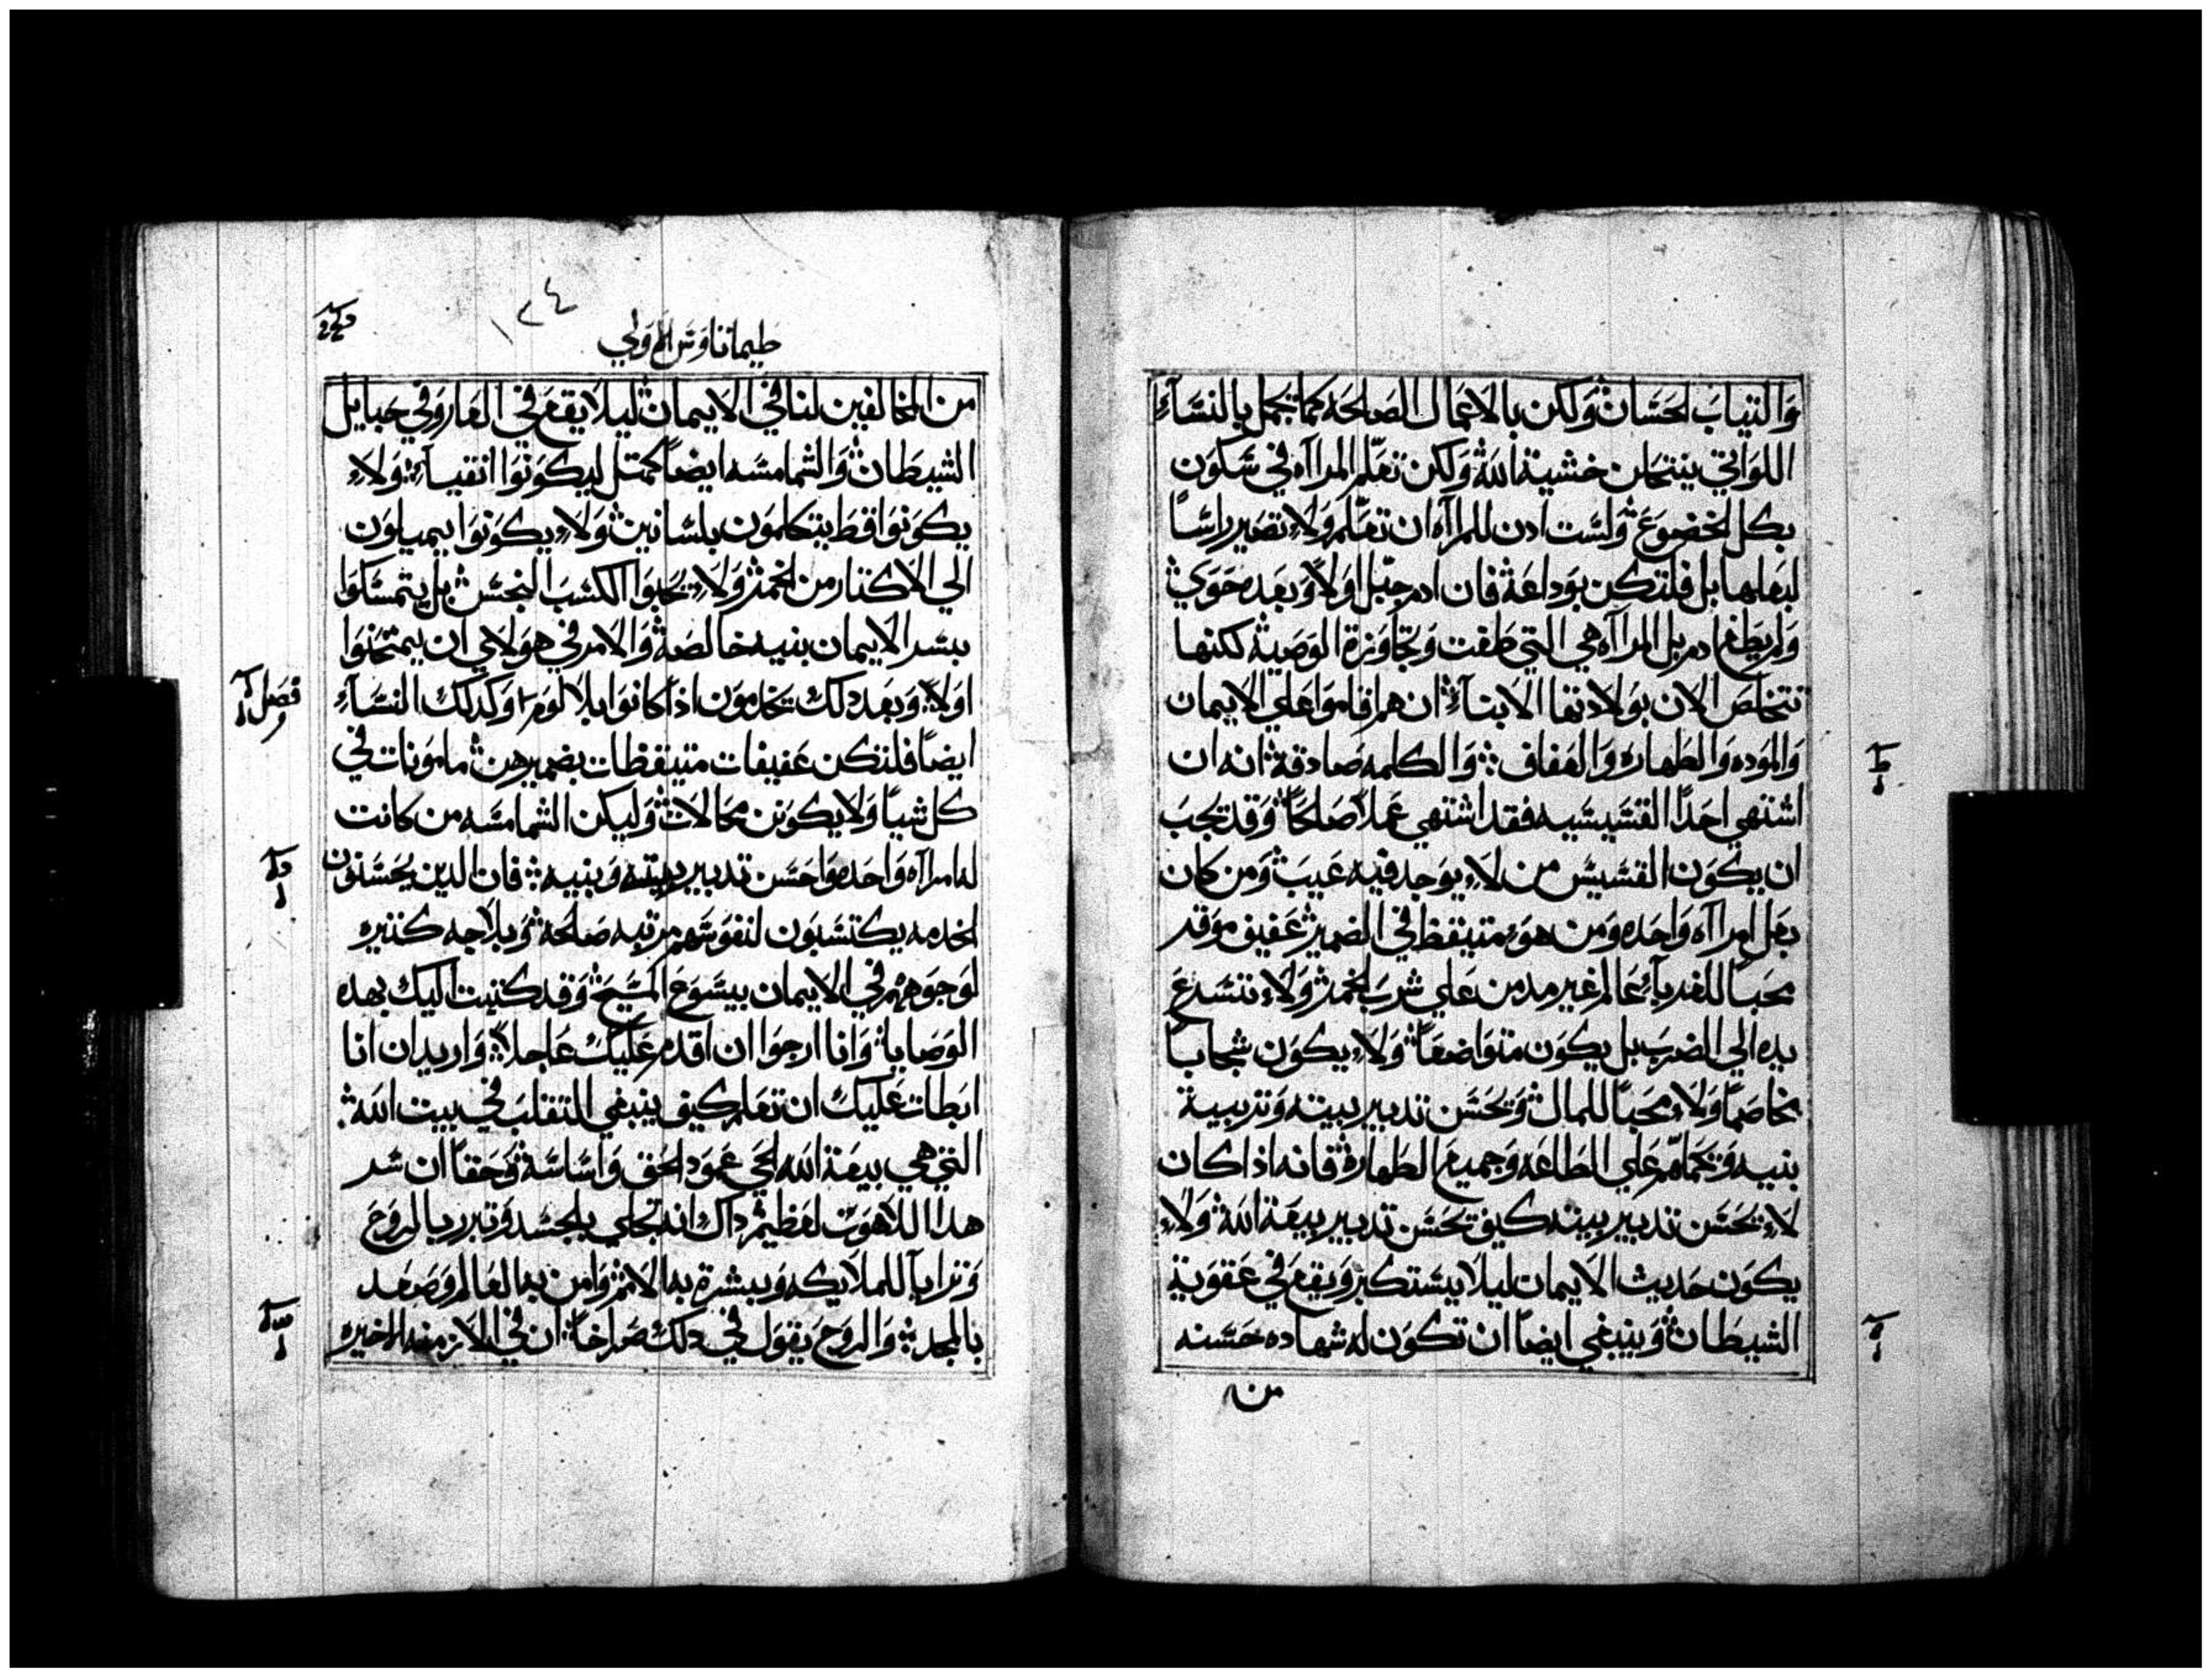 والتياب الحسان ولكن بالاعمال الصالحه كما تجمل بالنساء
اللواتي ينتحلن خشية الله ولكن تعلم المراه في سكون
بكل الخضوع ولست ادن للمراه ان تعلم ولا تصير راسا
لبعلها بل فلتكن بوداعة فان ادم جبل اولا وبعده حوي
ولم يطغ ادم بل المراه هي التي طغت وتجاوزة الوصية لكنها
تتخلص الان بولادتها الابناء ان هم اقاموا علي الايمان
والموده والطهاره والعفاف والكلمه صادقة انه ان
اشتهي احدا القسيسيه فقد اشتهي عملا صالحا وقد يجب
ان يكون القسيس من لا يوجد فيه عيب ومن كان
بعل امراه واحده ومن هو متيقظ في الضمير عفيف موقر
محبا للغرباء عالم غير مدمن علي شرب الخمر ولا تتسرع
يده الي الضرب بل يكون متواضعا ولا يكون شجابا
مخاصما ولا محبا للمال ويحسن تدبير بيته وتربية
بنيه ويحملهم علي الطاعه وجميع الطهارة فانه اذا كان
لا يحسن تدبير بيته كيف يحسن تدبير بيعة الله ولا
يكون حديث الايمان ليلا يستكبر ويقع في عقوبة
الشيطان وينبغي ايضا ان تكون له شهاده حسنه
من
طيماتاوس الاولي
من المخالفين لنا في الايمان ليلا يقع في العار وفي حبايل
الشيطان والشمامسه ايضا كمتل ليكونوا انقياء ولا
يكونوا قط يتكلمون بلسانين ولا يكونوا يميلون
الي الاكتار من الخمر ولا يحبوا الكسب النجس بل يتمسكوا
بسر الايمان بنيه خالصة والامر في هولاي ان يمتحنوا
اولا وبعد دلك يخدمون اذا كانوا بلا لوم وكدلك النساء
ايضا فلتكن عفيفات متيقظات بضميرهن مامونات في
كل شيا ولا يكونن محالات وليكن الشمامسه من كانت
له امراه واحده واحسن تدبير بيته وبنيه فان الدين يحسنون
الخدمه يكتسبون لنفوسهم مرتبه صالحة وبلاجه كتيره
لوجوههم في الايمان بيسوع المسيح وقد كتبت اليك بهده
الوصايا وانا ارجوا ان اقدم عليك عاجلا واريد ان انا
ابطات عليك ان تعلم كيف ينبغي التقلب في بيت الله
التي هي بيعة الله الحي عمود الحق واساسة وحقا ان سر
هدا اللاهوت لعظيم داك انه تجلي بالجسد وتبرر بالروح
وترايا للملايكه وبشرة به الامم وامن به العالم وصعد
بالمجد والروح يقول في دلك صراخا ان في الازمنه الاخيره
فصل